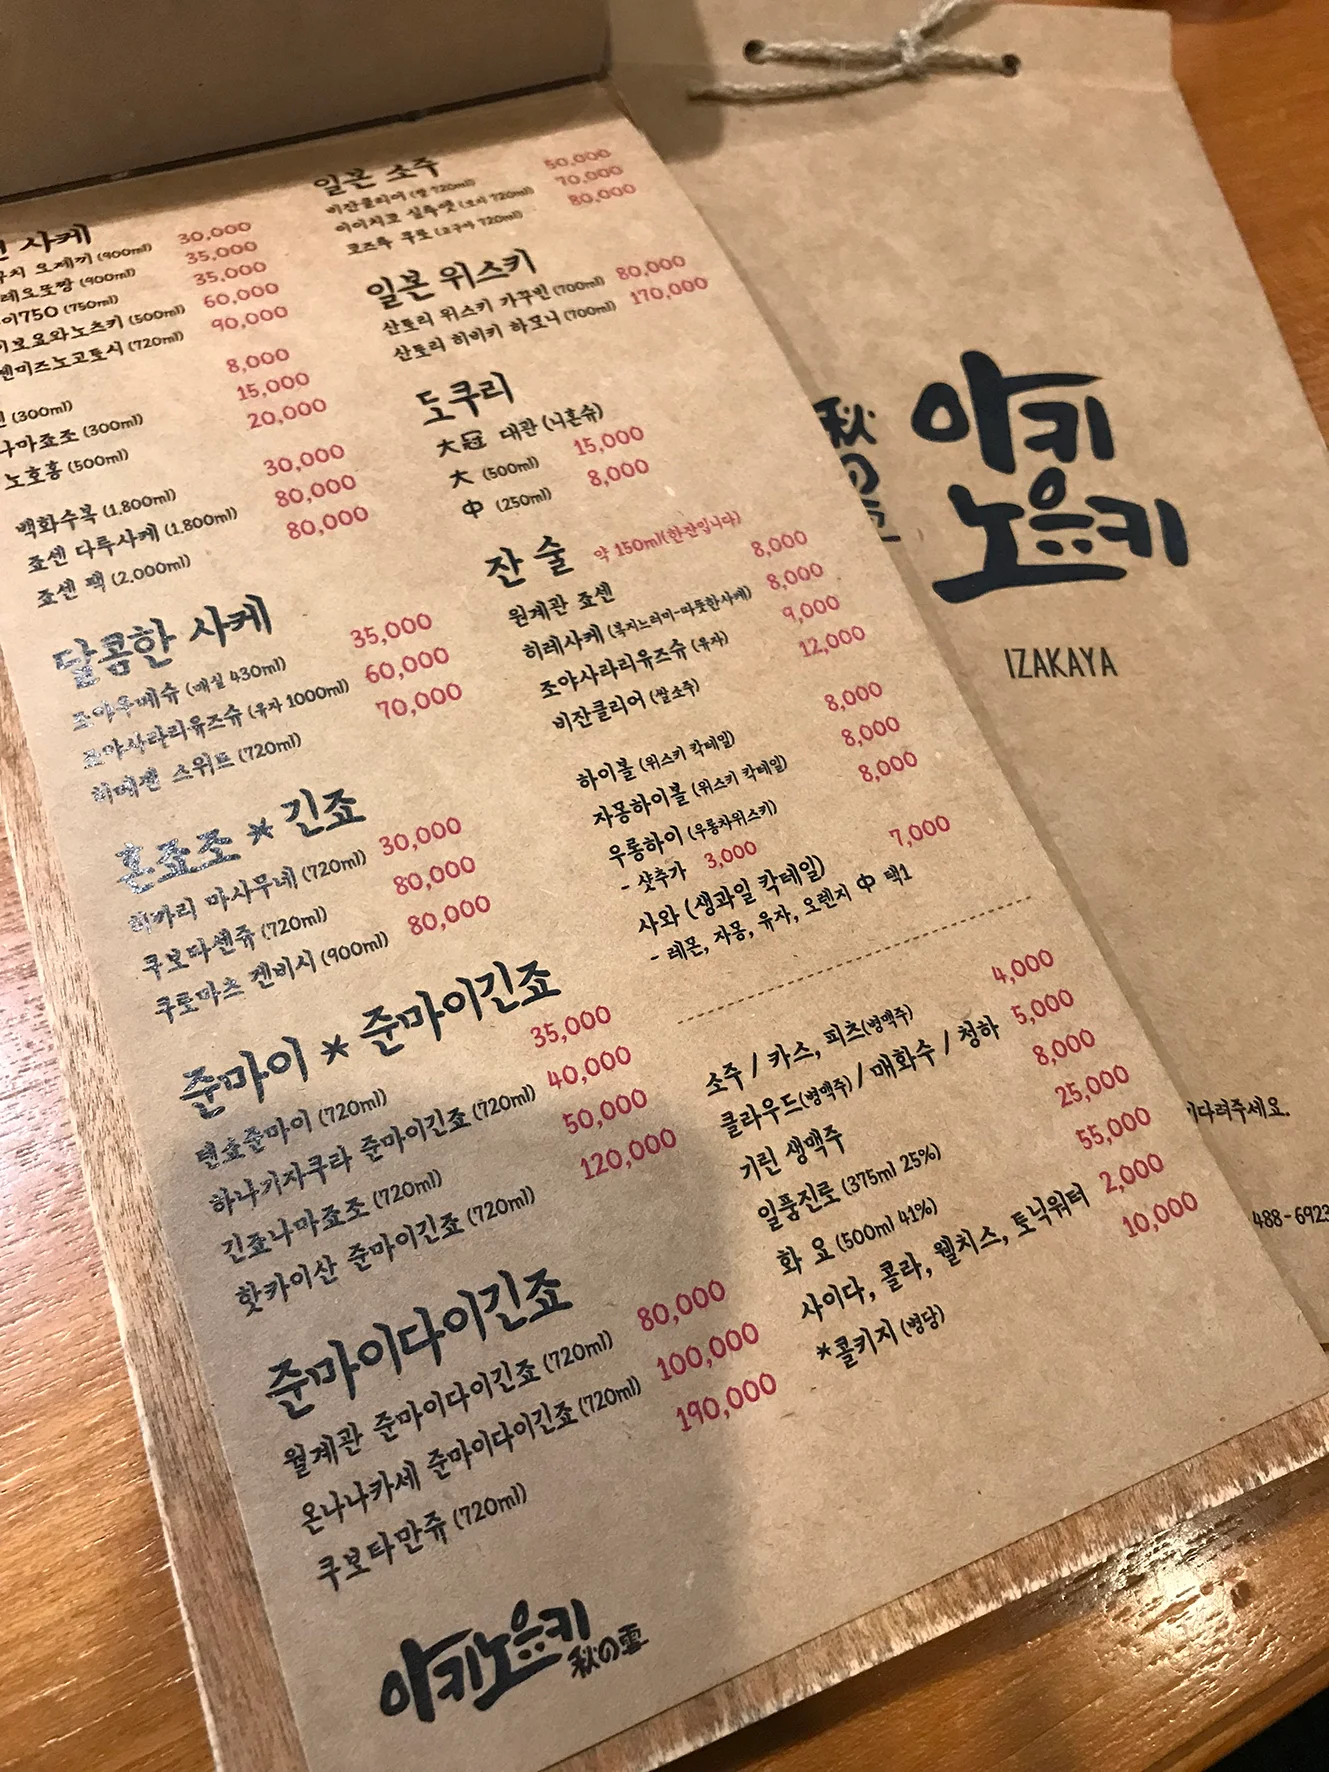 사케
오제끼 (900ml) 30,000
(900ml) 35,000
750 (750ml) 35,000
(500ml) 60,000
(720ml) 90,000
(300ml) 8,000
나마죠조 (300ml) 15,000
노호홍 (500ml) 20,000
백화수복 (1,800ml) 30,000
죠센 다루사케 (1,800ml) 80,000
죠센 팩 (2,000ml) 80,000
달콤한 사케
쵸야우메슈 (매실 430ml) 35,000
쵸야사라리유즈슈 (유자 1000ml) 60,000
히메젠 스위트 (720ml) 70,000
혼죠조 * 긴죠
히카리 마사무네 (720ml) 30,000
쿠보타센쥬 (720ml) 80,000
쿠로마츠 켄비시 (900ml) 80,000
준마이 * 준마이긴죠
텐쇼준마이 (720ml) 35,000
하나기자쿠라 준마이긴죠 (720ml) 40,000
긴죠나마죠조 (720ml) 50,000
핫카이산 준마이긴죠 (720ml) 120,000
준마이다이긴죠
월계관 준마이다이긴죠 (720ml) 80,000
온나나카세 준마이다이긴죠 (720ml) 100,000
쿠보타만쥬 (720ml) 190,000
아키노유키
秋の雲
일본 소주
비잔클리어 (쌀 720ml) 50,000
이이치코 실루엣 (보리 720ml) 70,000
쿠로 (고구마 720ml) 80,000
일본 위스키
산토리 위스키 가쿠빈 (700ml) 80,000
산토리 히비키 하모니 (700ml) 170,000
도쿠리
大冠 대관 (니혼슈)
大 (500ml) 15,000
中 (250ml) 8,000
잔 술 약 150ml(한잔입니다)
월계관 죠센 8,000
히레사케 (복지느러미-따뜻한사케) 8,000
쵸야사라리유즈슈 (유자) 9,000
비잔클리어 (쌀소주) 12,000
하이볼 (위스키 칵테일) 8,000
자몽하이볼 (위스키 칵테일) 8,000
우롱하이 (우롱차위스키) 8,000
- 샷추가 3,000
사와 (생과일 칵테일) 7,000
- 레몬, 자몽, 유자, 오렌지 中 택1
소주 / 카스, 피츠(병맥주) 4,000
클라우드(병맥주) / 매화수 / 청하 5,000
기린 생맥주 8,000
일품진로 (375ml 25%) 25,000
화 요 (500ml 41%) 55,000
사이다, 콜라, 웰치스, 토닉워터 2,000
*콜키지 (병당) 10,000
秋の
아키
노유키
IZAKAYA
다려주세요.
488-6923